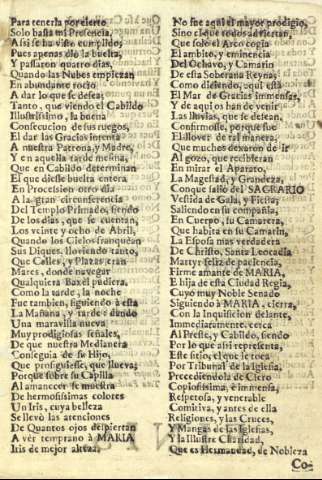 Para tenerla por cierto
Solo basta mi Presencia,
Assi se ha visto cumplido;
Pues apenas dió la buelta,
Y passaron quatro dias,
Quando las Nubes empiezan
En abundante rocio
A dar lo que se desea;
Tanto, que viendo el Cabildo
Illustrissimo, la buena
Consecucion de sus ruegos,
El dar las Gracias intenta
A nuestra Patrona, y Madre,
Y en aquella tarde mesma,
Que en Cabildo determinan
El que diesse buelta entera
En Procession otro dia
A la gran circunferencia
Del Templo Primado, siendo
De los dias, que se cuentan,
Los veinte y ocho de Abril,
Quando los Cielos franquean
Sus Diques, lloviendo tanto,
Que Calles, y Plazas eran
Mares, donde navegar
Qualquiera Baxel pudiera,
Como la tarde, la noche
Fue tambien, siguiendo à esta
La Mañana, y tarde: dando
Una maravilla nueva
Muy prodigiosas señales,
De que nuestra Medianera
Conseguia de su Hijo,
Que prosiguiesse, que llueva;
Porque sobre su Capilla
Al amanecer se muestra
De hermosissimas colores
Un Iris, cuya belleza
Se llevò las atenciones
De Quantos ojos despiertan
A vèr temprano à MARIA
Iris de mejor alteza.
No fue aqui el mayor prodigio,
Sino el que todos advierten,
Que solo el Arco copia
El ambito, y eminencia
Del Ochavo, y Camarin
De esta Soberana Reyna;
Como diciendo, aqui està
El Mar de Gracias immensas,
Y de aqui os han de venir
Las lluvias, que se desean,
Confirmose, porque fue
El llover de tal manera;
Que muchos dexaron de ir
Al gozo, que recibieran
En mirar el Aparato,
La Magestad, y Grandeza,
Con que saliò del SAGRARIO
Vestida de Gala, y Fiesta;
Saliendo en su compañia,
En Cuerpo, su Camarera,
Que habita en su Camarin,
La Esposa mas verdadera
De Christo, Santa Leocadia
Martyr feliz de paciencia,
Firme amante de MARIA,
E hija de esta Ciudad Regia,
Cuyo muy Noble Senado
Siguiendo à MARIA, cierra,
Con la Inquisicion delante,
Immediatamente cerca
Al Preste, y Cabildo, siendo
Por lo que assi representa,
Este sitio, el que le toca
Por Tribunal de la Iglesia,
Precediendola de Clero
Copiosissima, è immensa,
Respetosa, y venerable
Comitiva, y antes de ella
Religiones, y las Cruces,
Y Mangas de las Iglesias,
Y la Illustre Charidad,
Que es Hermandad, de Nobleza
Co-